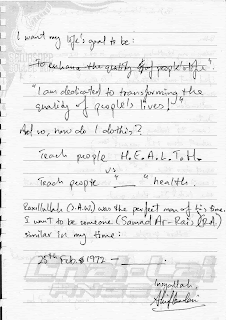 I want my life's goal to be:
To enhance the quality of people's life".
"I am dedicated to transforming the
quality of people's lives!"
And so, how do I do this?
Teach people H.E.A.L.T.H.
vs
Teach people "___" health.
Rasulullah (S.A.W.) was the perfect man of his time.
I want to be someone (Samad Ar-Rais) (R.A.)
similar in my time:
25th Feb. 1972 —
Insyallah,